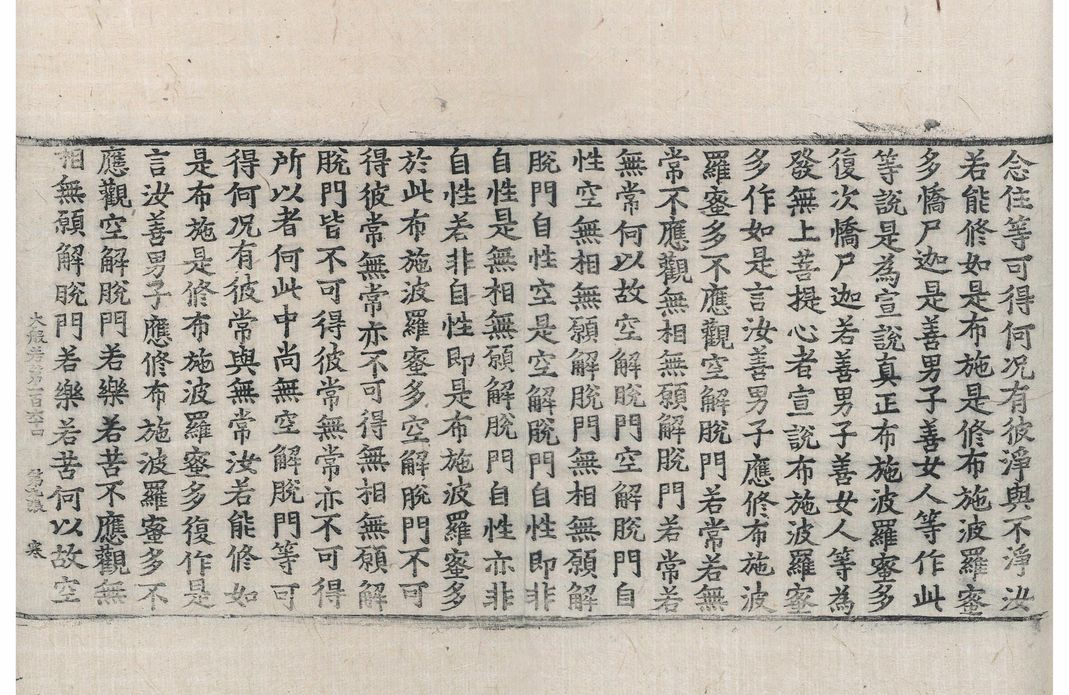 念住等可得何况有彼淨與不淨汝
若能修如是布施是修布施波羅蜜
多憍尸迦是善男子善女人等作此
等說是為宣說真正布施波羅蜜多
復次憍尸迦若善男子善女人等為
發無上菩提心者宣說布施波羅蜜
多作如是言汝善男子應修布施波
羅蜜多不應觀空解脫門若常若無
常不應觀無相無願解脫門若常若
無常何以故空解脫門空解脫門自
性空無相無願解脫門無相無願解
脫門自性空是空解脫門自性即非
自性是無相無願解脫門自性亦非
自性若非自性即是布施波羅蜜多
於此布施波羅蜜多空解脫門不可
得彼常無常亦不可得無相無願解
脫門皆不可得彼常無常亦不可得
所以者何此中尚無空解脫門等可
得何况有彼常與無常汝若能修如
是布施是修布施波羅蜜多復作是
言汝善男子應修布施波羅蜜多不
應觀空解脫門若樂若苦不應觀無
相無願解脫門若樂若苦何以故空
大般若第一百六十四 第 張 寒